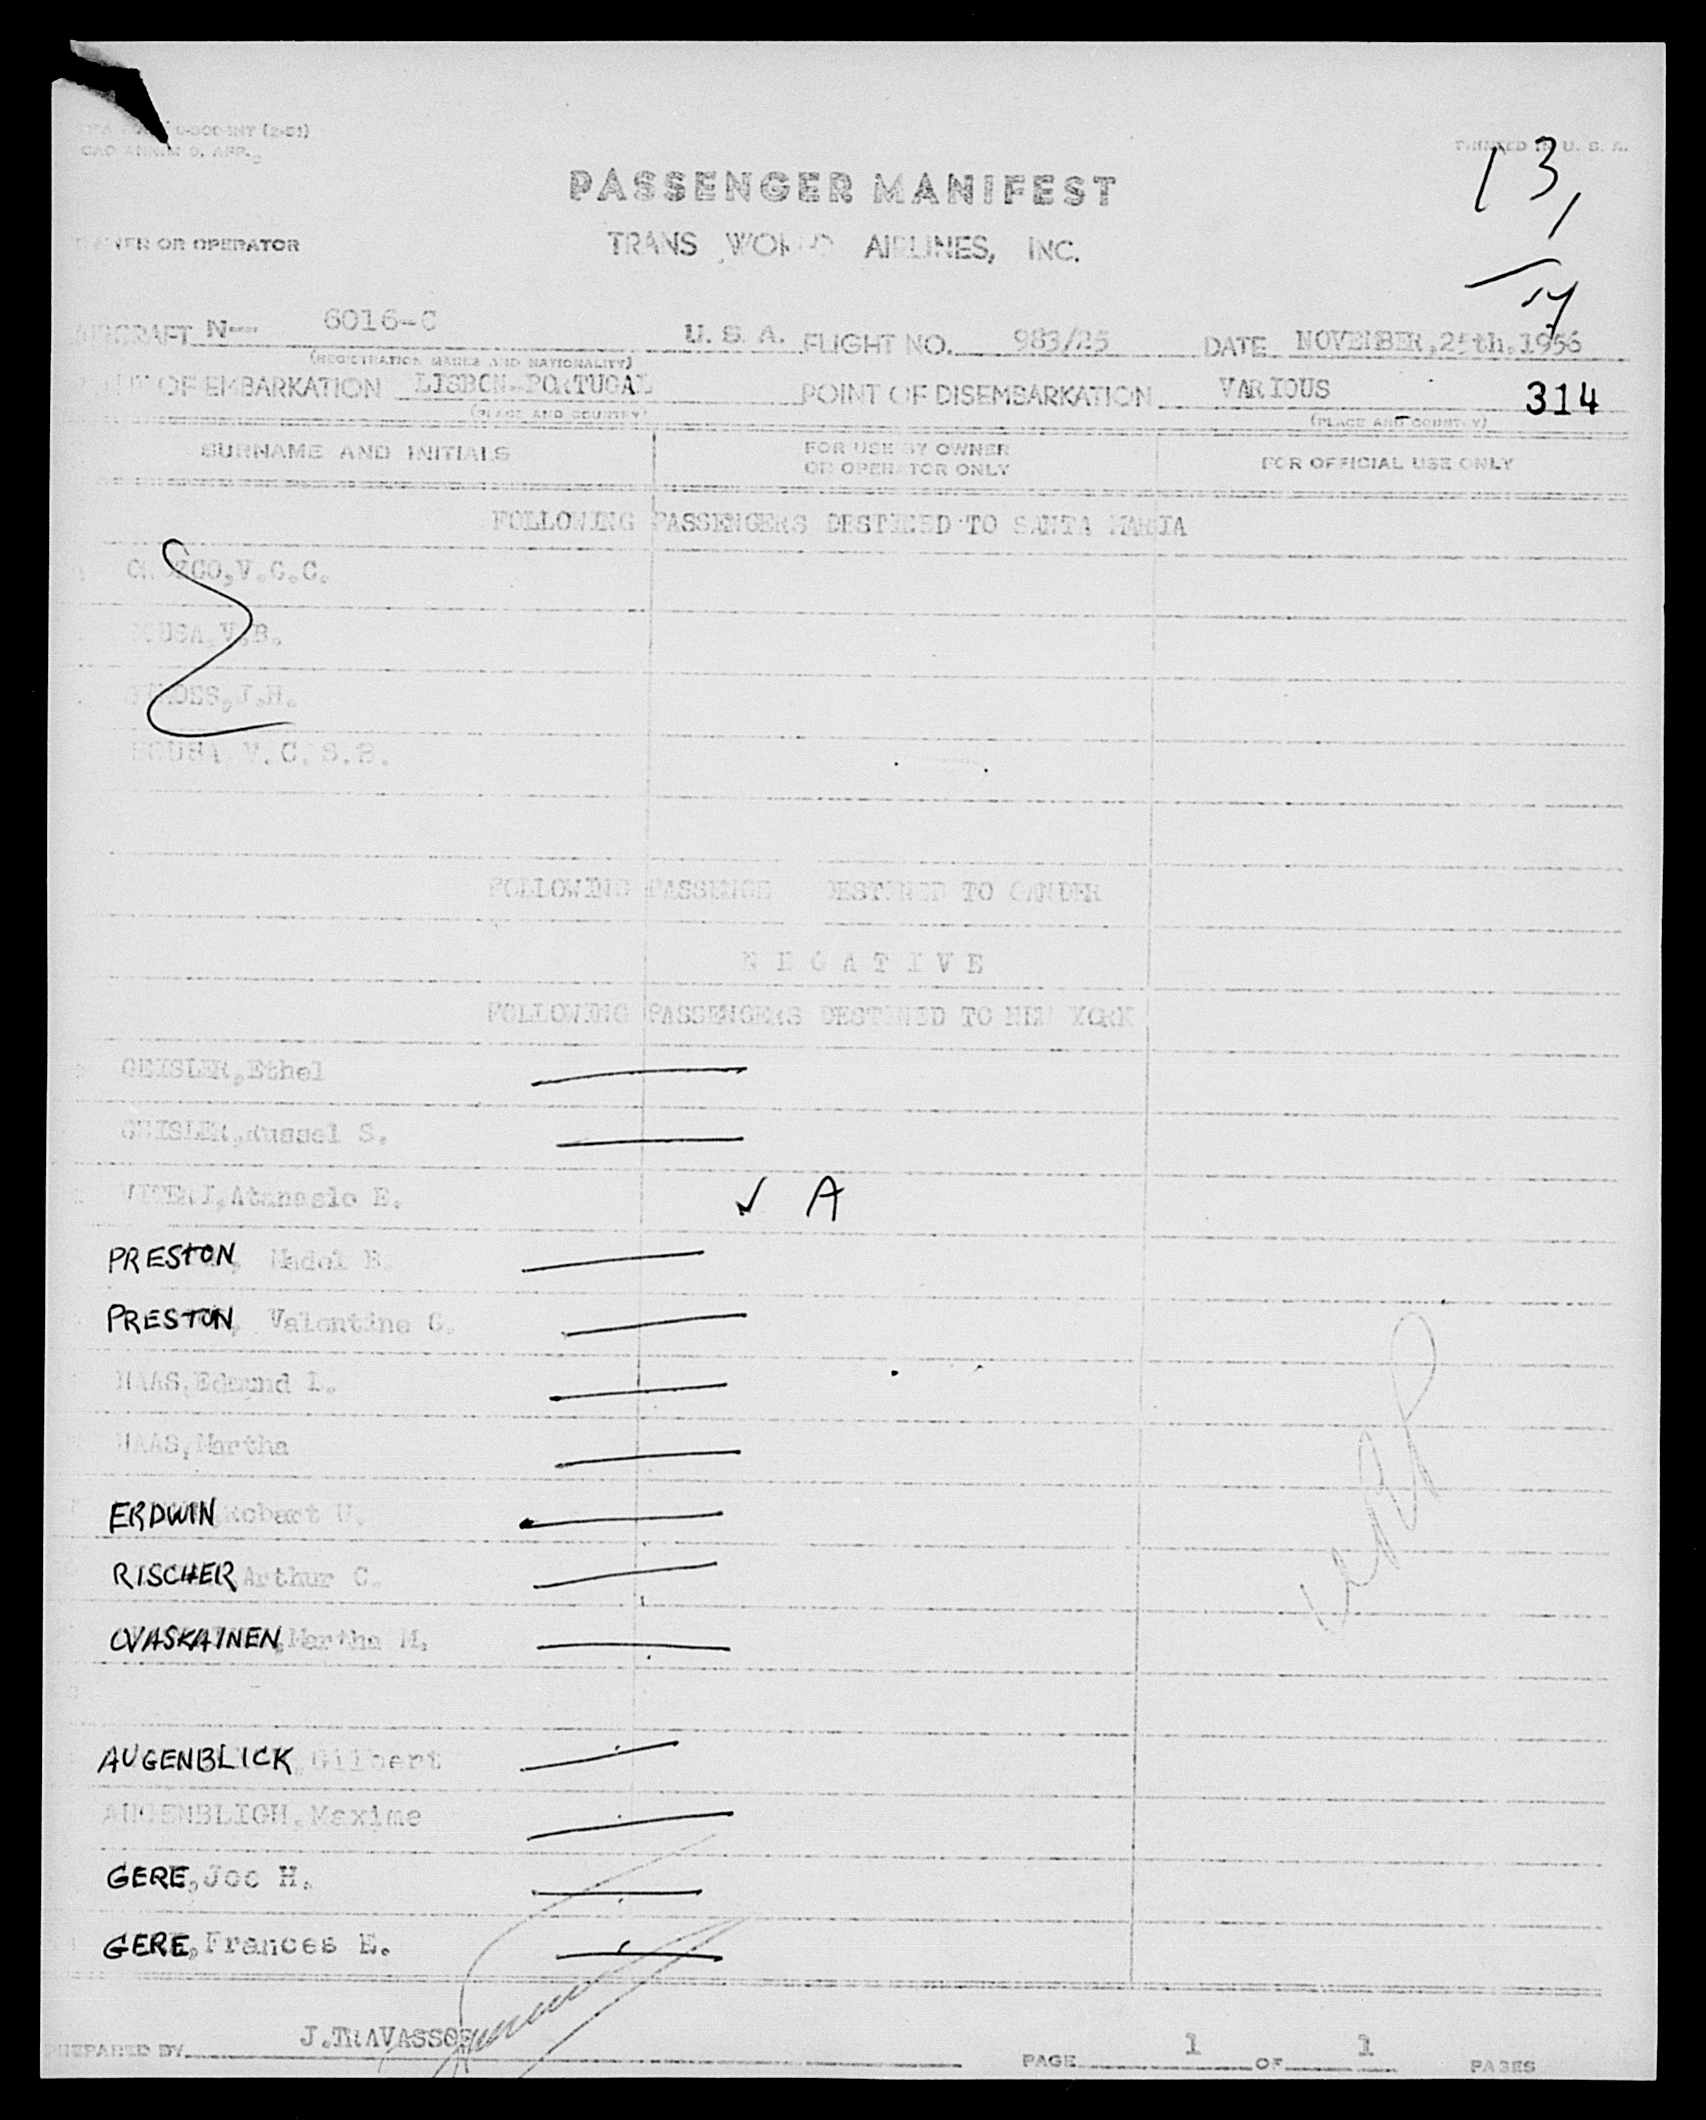 PRINTED IN U. S. A.
13,
PASSENGER MANIFEST
OWNER OR OPERATOR TRANS WORLD AIRLINES, INC.
14
AIRCRAFT N-- 6016-C U. S. A. FLIGHT NO. 983/25 DATE NOVEMBER,25th.1956
(REGISTRATION MARKS AND NATIONALITY)
POINT OF EMBARKATION LISBON-PORTUGAL POINT OF DISEMBARKATION VARIOUS 314
(PLACE AND COUNTRY) (PLACE AND COUNTRY)
SURNAME AND INITIALS FOR USE BY OWNER OR OPERATOR ONLY FOR OFFICIAL USE ONLY
FOLLOWING PASSENGERS DESTINED TO SANTA MARIA
V.C.C.
SOUSA,V.B.
J.H.
SOUSA V.C.S.B.
FOLLOWING PASSENGE DESTINED TO GANDER
N E G A T I V E
FOLLOWING PASSENGERS DESTINED TO NEW YORK
GEISLER,Ethel
GEISLER,Russel S.
Atanasio E. ✓ A
PRESTON, Madel B.
PRESTON, Valentine G.
HAAS,Edmund L.
HAAS,Martha
ERDWIN,Robert
RISCHER Arthur C.
OVASKAINEN,Martha M.
AUGENBLICK,Gilbert
AUGENBLIGH,Maxime
GERE,Joe H.
GERE,Frances E.
PREPARED BY J.TRAVASSOS PAGE 1 OF 1 PAGES